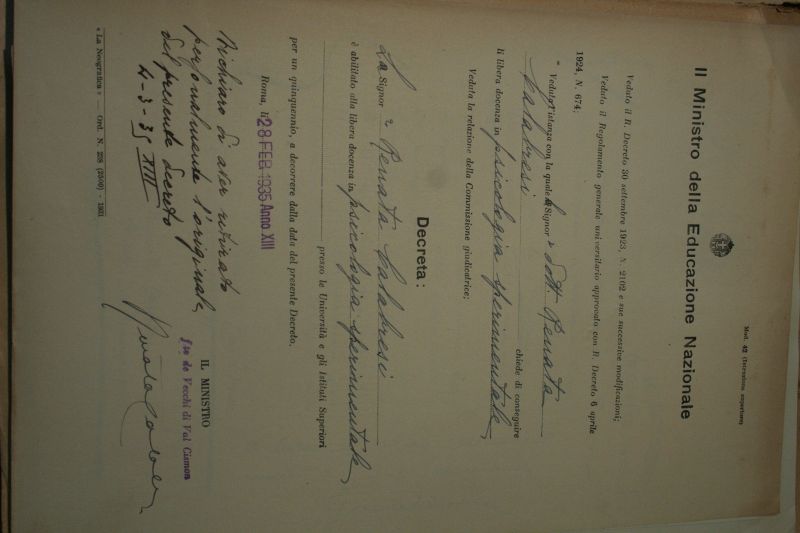 Mod. 42 (Istruzione superiore)
Il Ministro della Educazione Nazionale
Veduto il R. Decreto 30 settembre 1923, N. 2102 e sue successive modificazioni;
Veduto il Regolamento generale universitario approvato con R. Decreto 6 aprile
1924, N. 674;
Veduta l'istanza con la quale la Signora dott. Renata
Calabresi chiede di conseguire
la libera docenza in psicologia sperimentale
Veduta la relazione della Commissione giudicatrice;
Decreta:
La Signora Renata Calabresi
è abilitata alla libera docenza in psicologia sperimentale
presso le Università e gli Istituti Superiori
per un quinquennio, a decorrere dalla data del presente Decreto.
Roma, li 28 FEB. 1935 Anno XIII
IL MINISTRO
f.to de Vecchi di Val Cismon
Dichiaro di aver ritirato
personalmente l'originale
del presente decreto
4-3-35 XIII
Renata Calabresi
« La Neografica » - Ord. N. 228 (2500) - 1931.